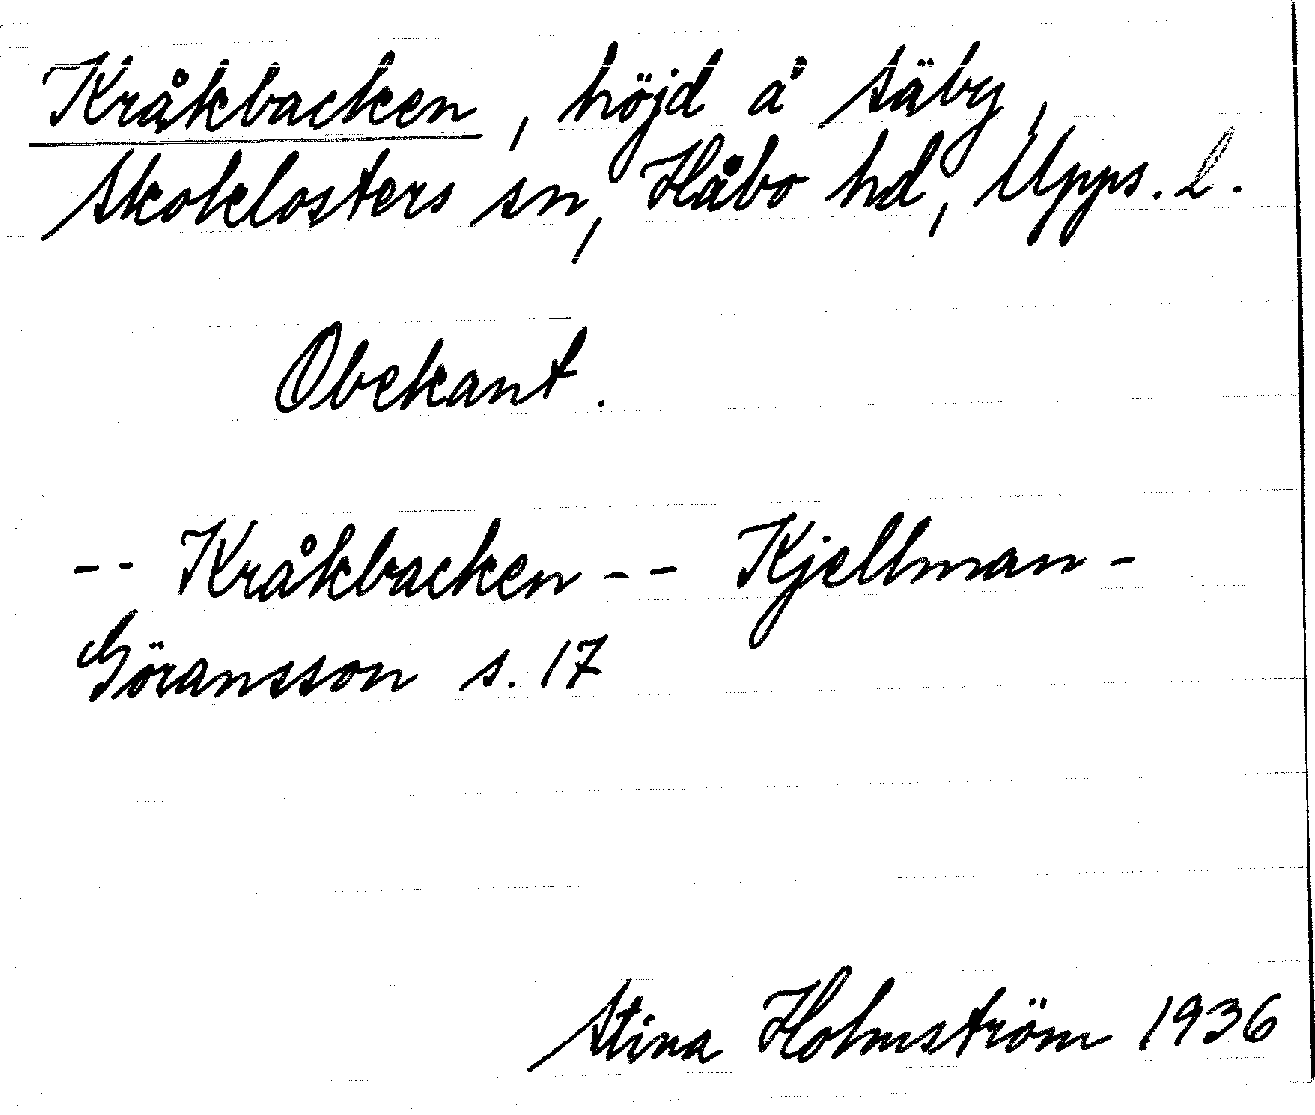 Kråkbacken, höjd å Säby,
Skoklosters sn, Håbo hd, Upps. l.
Obekant.
-- Kråkbacken -- Kjellman-
Göransson s. 17
Stina Holmström 1936